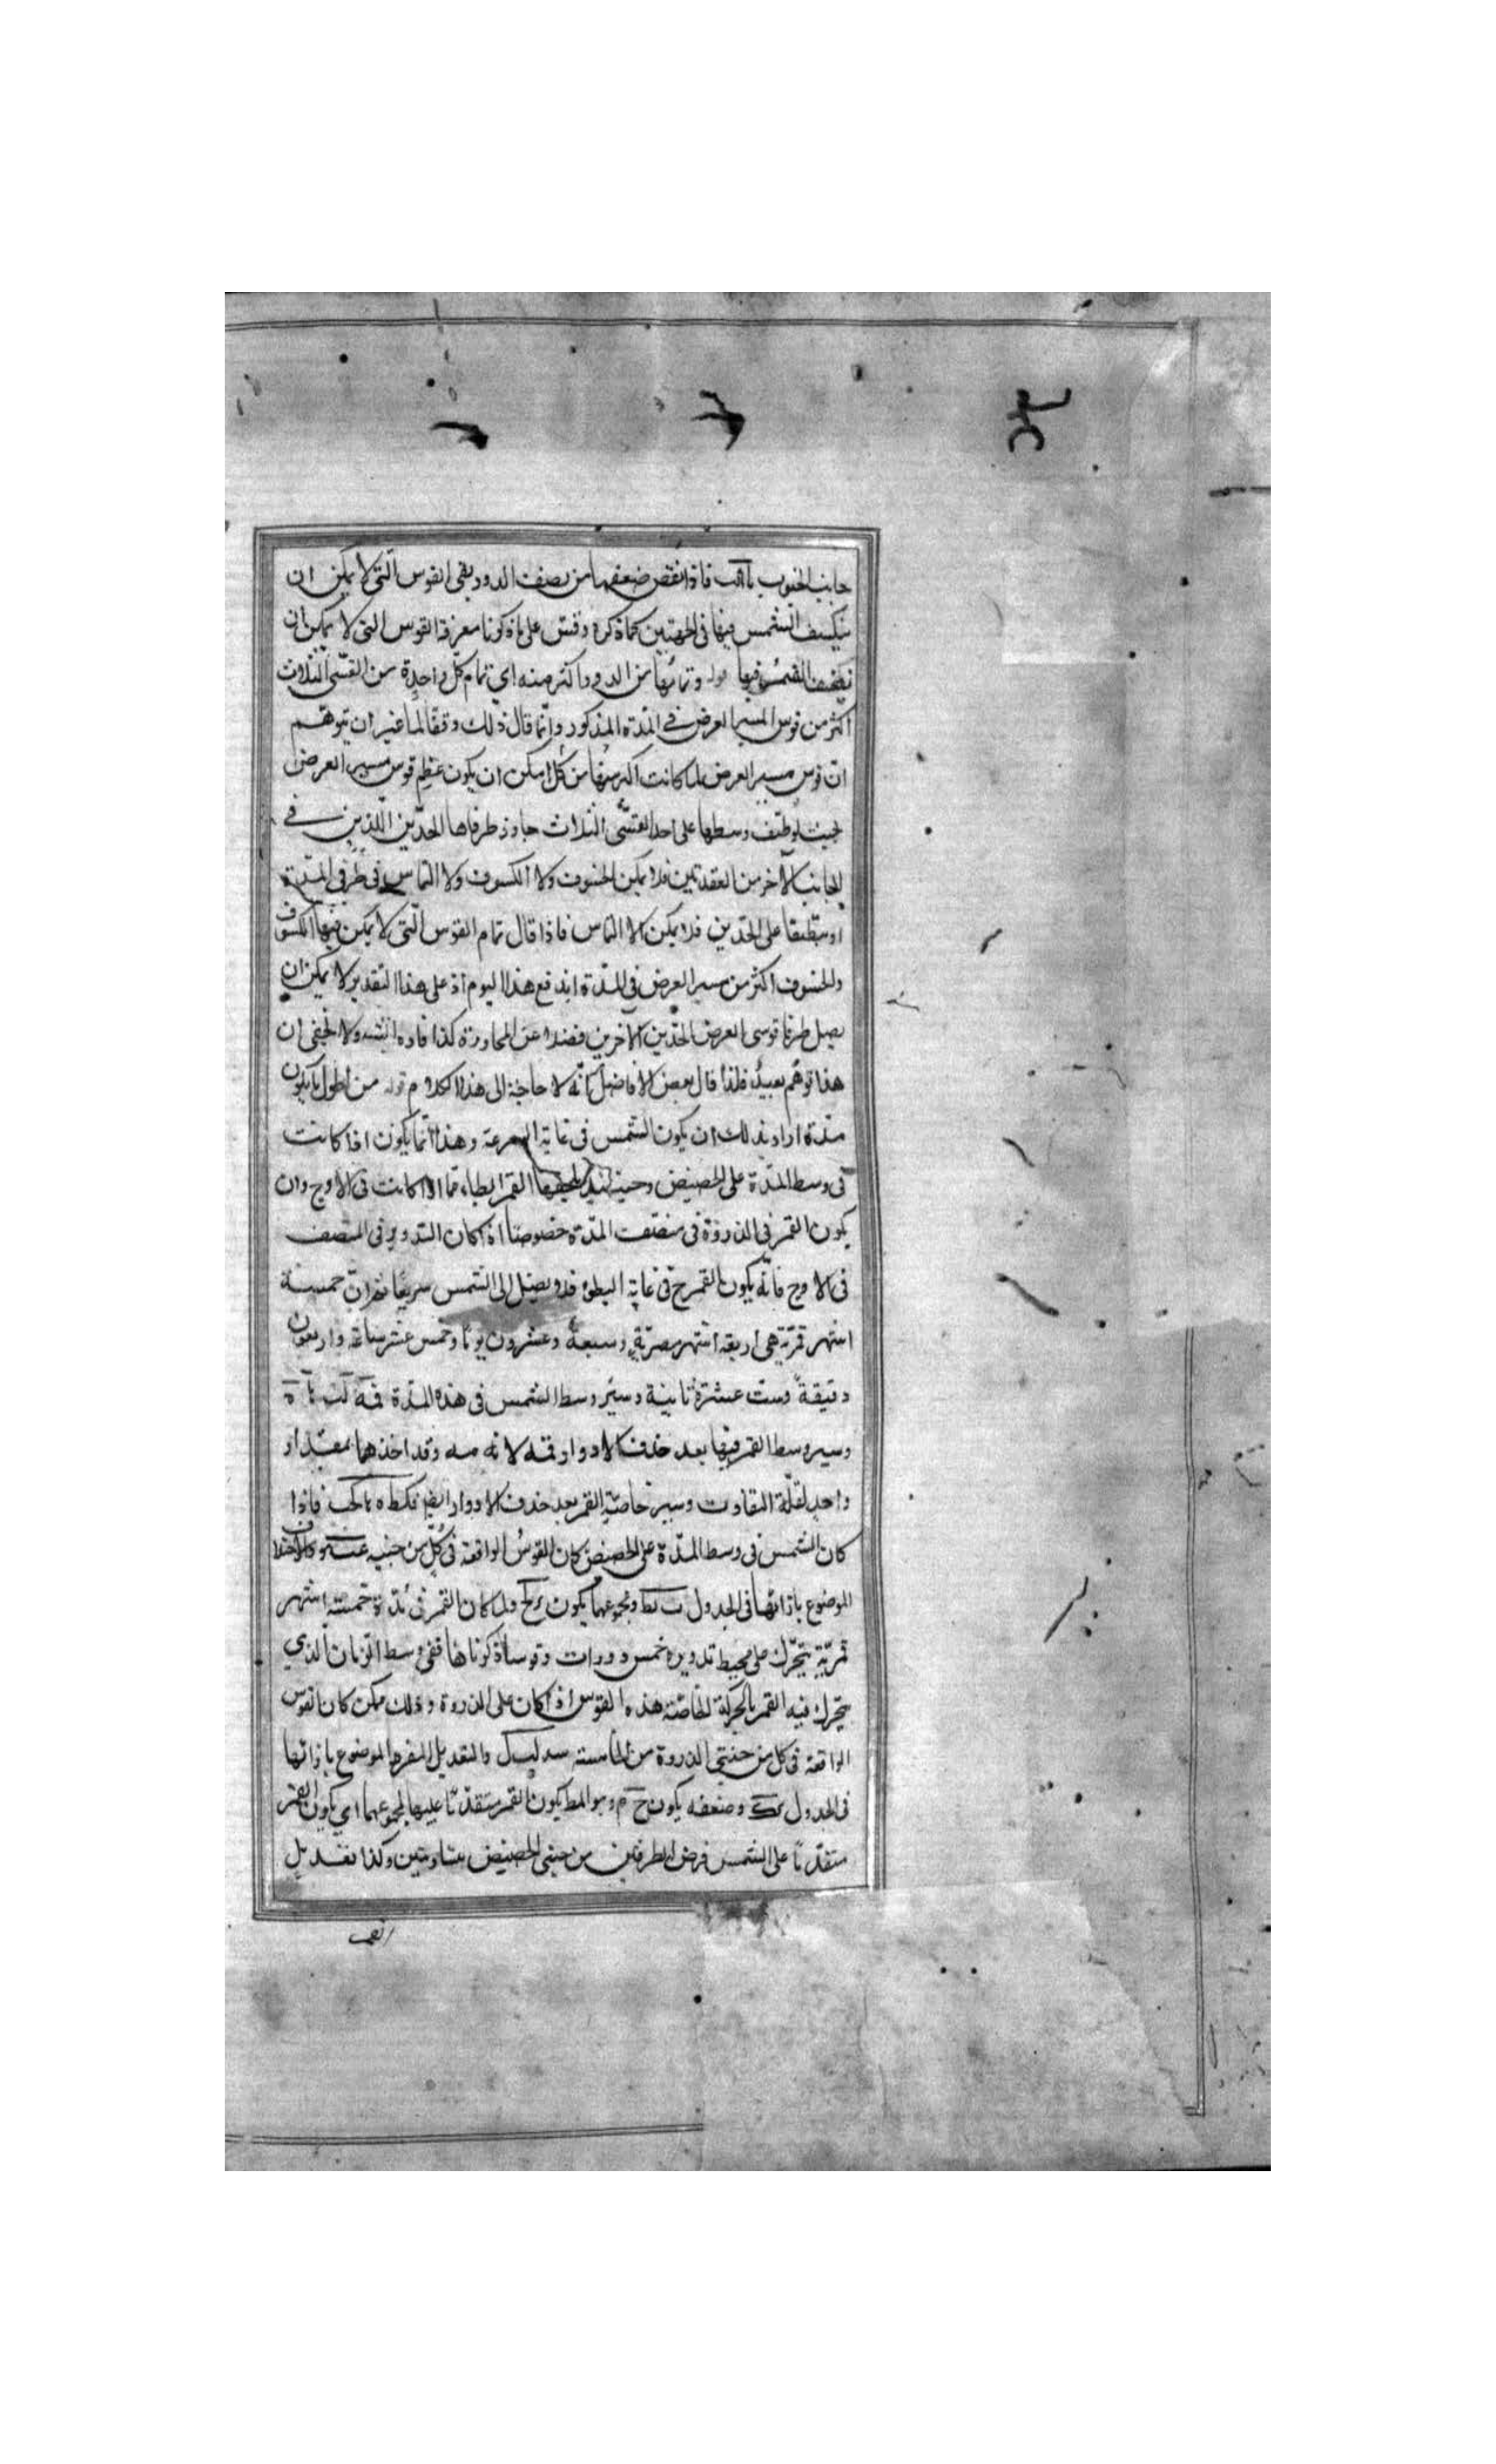 جانب الجنوب يا لب فاذا نقص ضعفها من نصف الدور بقى القوس التى لا يمكن ان
ينكسف الشمس فيها فى الجهتين كما ذكره وقس على ما ذكرنا معرفة القوس التى لا يمكن ان
فيها قوله وتمامها من الدور اكثر منه اى تمام كل واحدة من القسّى الثلاث
اكثر من قوس المسير العرض فى المدة المذكور وانّما قال ذلك وقفًا لما عسى ان يتوهّم
ان قوس مسير العرض لما كانت اكبر منها من كل امكن ان يكون عظم قوس مسير العرض
بحيث لو طبّق وسطها على احد القسّى الثلاث جاوز طرفاها الحدّين اللذين فى
الجانب الآخر من العقدتين فلا يمكن الخسوف ولا الكسوف ولا التماس فى طرفى المدّة
او ينطبقا على الحدّين فلا يمكن الا التماس فاذا قال تمام القوس التى لا يمكن فيها الكسوف
والخسوف اكثر من مسير العرض فى المدّة اندفع هذا اليوم اذ على هذا التقدير لا يمكن ان
يصل طرفا قوسى العرض الحدّين الآخرين فضلا عن المجاوزة كذا افاده السّيد ولا يخفى ان
هذا توهّم بعيد فلذا قال بعض الافاضل انّه لا حاجة الى هذا الكلام قوله من اطول ما يكون
مدّة اراد بذلك ان يكون الشمس فى غاية السرعة وهذا انّما يكون اذا كانت
فى وسط المدّة على الحضيض وحينئذ يلحقها القمر ابطاء مما اذا كانت فى الاوج وان
يكون القمر فى الذروة فى منتصف المدّة خصوصا اذا كان التدوير فى المنتصف
فى الاوج فانّه يكون القمر ح فى غاية البطؤ فلا يصل الى الشمس سريعًا ثم انّ خمسة
اشهر قمريّة هى اربعة اشهر مصريّة وسبعة وعشرون يومًا وخمس عشر ساعة واربعون
دقيقة وست عشرة ثانية وسير وسط الشمس فى هذه المدّة قمه لب نا ه
وسير وسط القمر فيها بعد حذف الادوار قمه لا نه مه وقد اخذهما بمقدار
واحد لقلّة التفاوت وسير خاصّة القمر بعد حذف الادوار ايضا قكط ه نا كب فاذا
كان الشمس فى وسط المدّة على الحضيض كان القوس الواقعة فى كلّ من جنبيه والاختلاف
الموضوع بازائها فى الجدول ب كط ومجموعهما يكون ولما كان القمر فى مدّة خمسة اشهر
قمريّة يتحرّك على محيط تدويره خمس دورات وقوسا ذكرناها ففى وسط الزمان الذى
يتحرك فيه القمر بالحركة الخاصّة هذه القوس اذا كان على الذروة وذلك ممكن كان القوس
الواقعة فى كل من جنبتى الذروة من الخاصة سد لب ك والتعديل المفرد الموضوع بازائها
فى الجدول وضعفه يكون ح م وبوالمط يكون القمر متقدّمًا عليها بمجموعهما اى يكون القمر
متقدّمًا على الشمس فرض الطرفين من جنبى الحضيض متساويتين وكذا تعديل
القمر